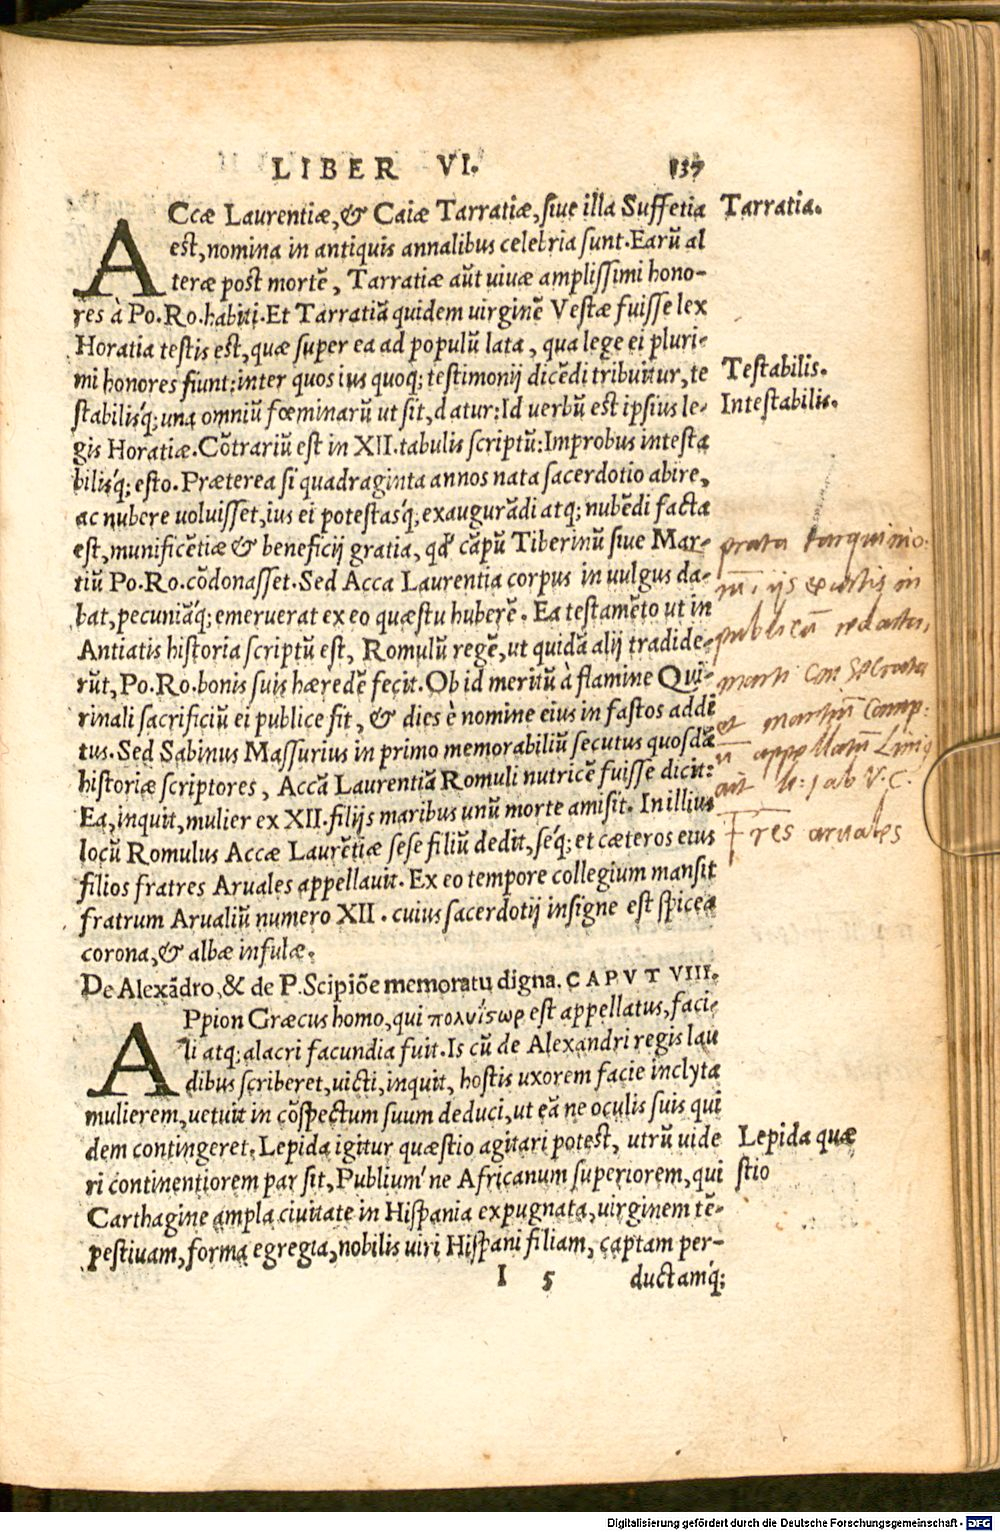 LIBER VI. 137
ACcæ Laurentiæ, & Caiæ Tarratiæ, siue illa Suffetia
Tarratia.
est, nomina in antiquis annalibus celebria sunt. Earũ al
teræ post mortẽ, Tarratiæ aũt uiuæ amplissimi hono-
res à Po. Ro. habiti. Et Tarratiã quidem uirginẽ Vestæ fuisse lex
Horatia testis est, quæ super ea ad populũ lata, qua lege ei pluri-
mi honores fiunt: inter quos ius quoq; testimonij dicẽdi tribuitur, te
Testabilis.
stabilisq́; una omniũ fœminarũ ut sit, datur: Id uerbũ est ipsius le-
Intestabilis.
gis Horatiæ. Cõtrariũ est in XII. tabulis scriptũ: Improbus intesta
bilisq́; esto. Præterea si quadraginta annos nata sacerdotio abire,
ac nubere uoluisset, ius ei potestasq́; exaugurãdi atq; nubẽdi facta
est, munificẽtiæ & beneficij gratia, qđ cãpũ Tiberinũ siue Mar-
tiũ Po. Ro. cõdonasset. Sed Acca Laurentia corpus in uulgus da-
bat, pecuniãq́; emeruerat ex eo quæstu huberẽ. Ea testamẽto ut in
Antiatis historia scriptũ est, Romulũ regẽ, ut quidã alij tradide-
rũt, Po. Ro. bonis suis hæredẽ fecit. Ob id meritũ à flamine Qui-
rinali sacrificiũ ei publice fit, & dies è nomine eius in fastos addi
tus. Sed Sabinus Massurius in primo memorabiliũ secutus quosdã
historiæ scriptores, Accã Laurentiã Romuli nutricẽ fuisse dicit:
Ea, inquit, mulier ex XII. filijs maribus unũ morte amisit. In illius
locũ Romulus Accæ Laurẽtiæ sese filiũ dedit, séq́; et cæteros eius
filios fratres Aruales appellauit. Ex eo tempore collegium mansit
fratrum Arualiũ numero XII. cuius sacerdotij insigne est spicea
corona, & albæ infulæ.
prata tarquinio-
rũ, ijs exactis in
publicũ redacta,
marti consecrata
et martiũ camp-
ũ appellatũ Liuius
ait li: 1 ab V. C.
Fres aruales
De Alexãdro, & de P. Scipiõe memoratu digna. CAPVT VIII.
APpion Græcus homo, qui πολυΐστωρ est appellatus, faci-
li atq; alacri facundia fuit. Is cũ de Alexandri regis lau
dibus scriberet, uicti, inquit, hostis uxorem facie inclyta
mulierem, uetuit in cõspectum suum deduci, ut eã ne oculis suis qui
dem contingeret. Lepida igitur quæstio agitari potest, utrũ uide
Lepida quæ
ri continentiorem par sit, Publium´ne Africanum superiorem, qui
stio
Carthagine ampla ciuitate in Hispania expugnata, uirginem tẽ-
pestiuam, forma egregia, nobilis uiri Hispani filiam, captam per-
I 5 ductamq́;
Digitalisierung gefördert durch die Deutsche Forschungsgemeinschaft - DFG